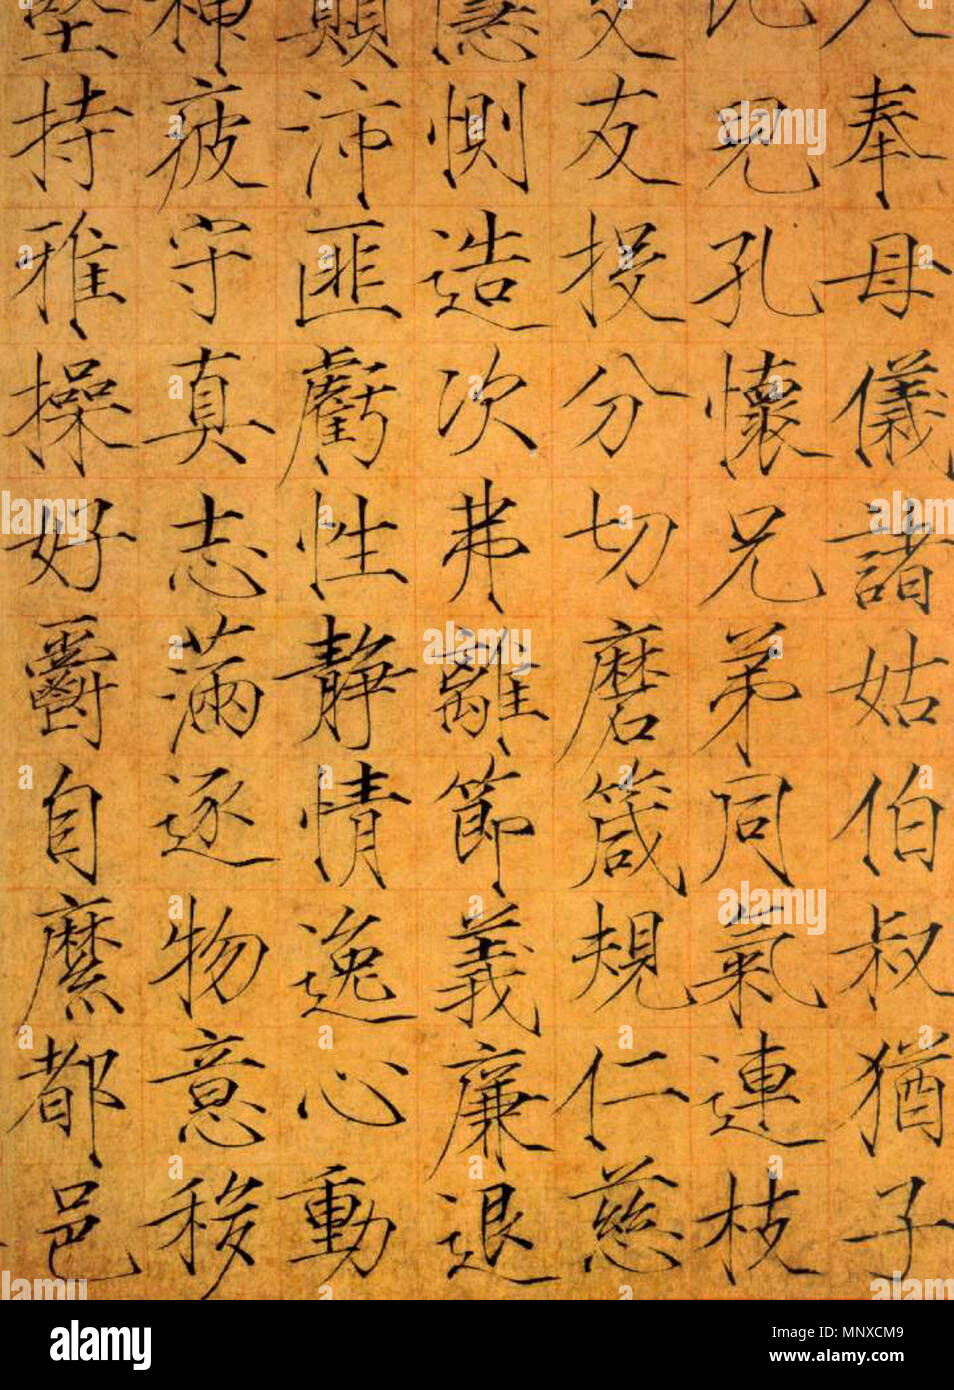 入奉母儀諸姑伯叔猶子
比兒孔懷兄弟同氣連枝
交友投分切磨箴規仁慈
隱惻造次弗離節義廉退
顛沛匪虧性靜情逸心動
神疲守真志滿逐物意移
堅持雅操好爵自縻都邑
alamy
Image ID: MNXCM9
www.alamy.com